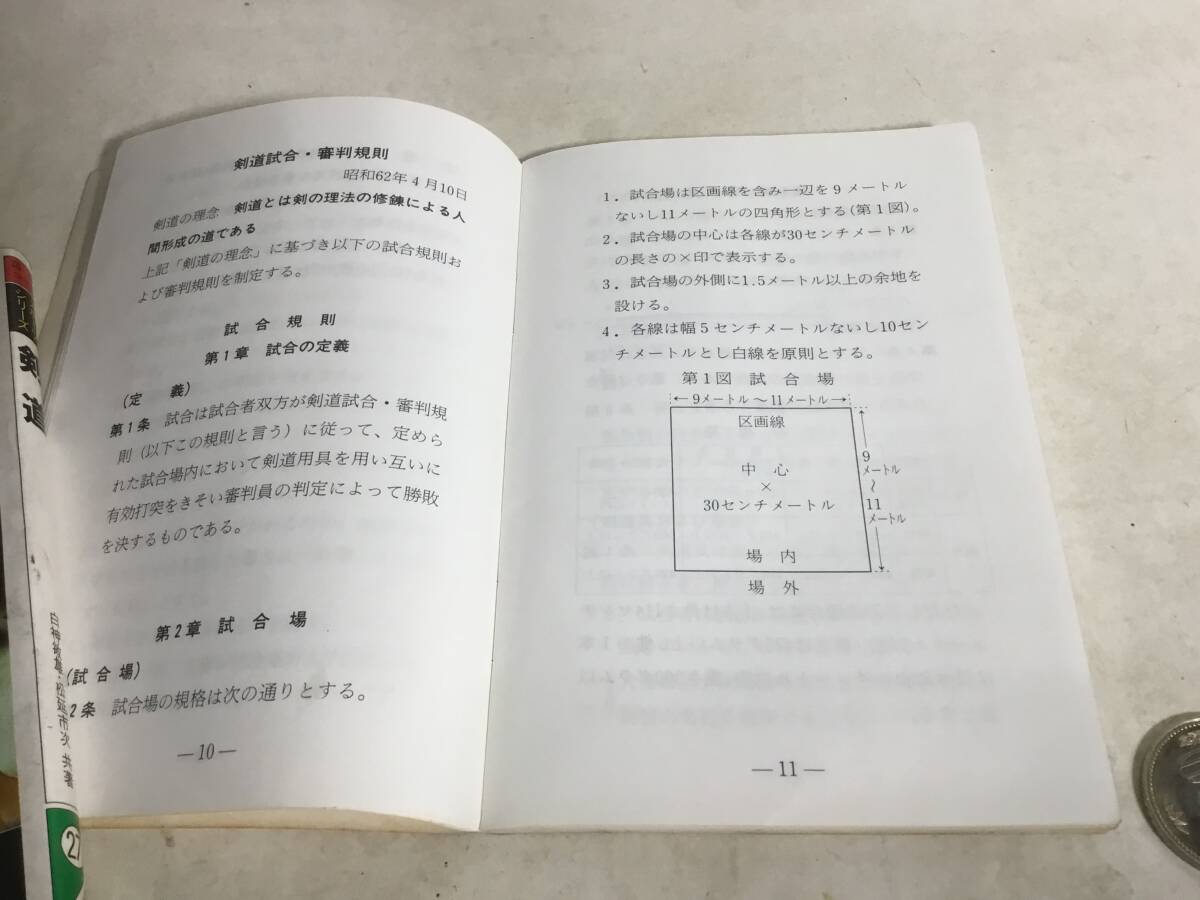 剣道試合・審判規則
昭和62年4月10日
剣道の理念 剣道とは剣の理法の修錬による人
間形成の道である
上記「剣道の理念」に基づき以下の試合規則お
よび審判規則を制定する。
試合規則
第1章 試合の定義
(定 義)
第1条 試合は試合者双方が剣道試合・審判規
則(以下この規則と言う)に従って、定めら
れた試合場内において剣道用具を用い互いに
有効打突をきそい審判員の判定によって勝敗
を決するものである。
第2章 試合場
(試合場)
2条 試合場の規格は次の通りとする。
—10—
1.試合場は区画線を含み一辺を9メートル
ないし11メートルの四角形とする(第1図)。
2.試合場の中心は各線が30センチメートル
の長さの×印で表示する。
3.試合場の外側に1.5メートル以上の余地を
設ける。
4.各線は幅5センチメートルないし10セン
チメートルとし白線を原則とする。
第1図 試合場
←9メートル〜11メートル→
区画線
中 心
×
30センチメートル
場 内
場 外
9
メートル
〜
11
メートル
—11—
シリーズ
剣道
市次 共著
27